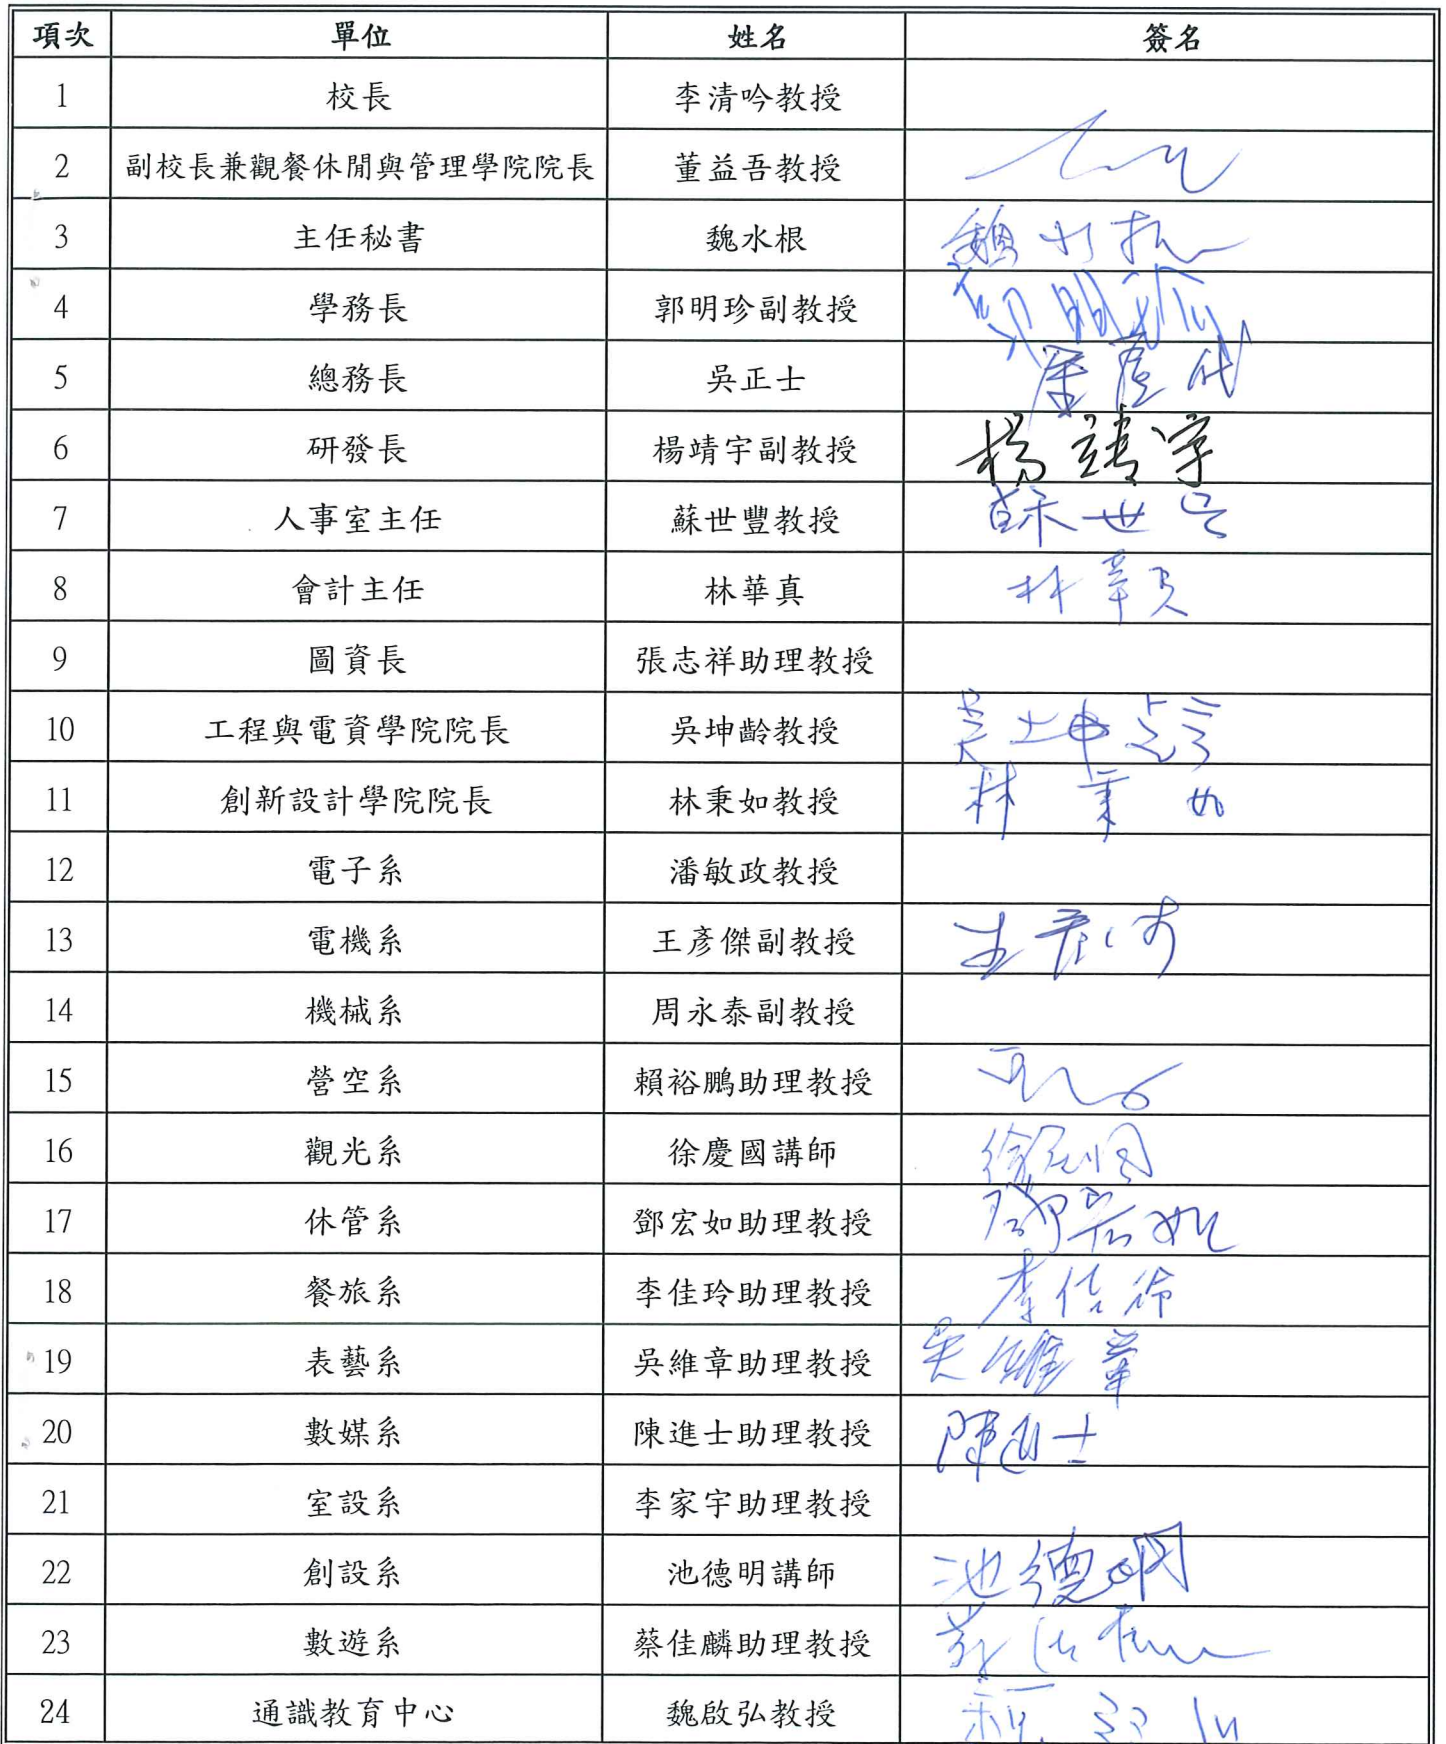 項次 單位 姓名 簽名
1 校長 李清吟教授
2 副校長兼觀餐休閒與管理學院院長 董益吾教授
3 主任秘書 魏水根 魏水根
4 學務長 郭明珍副教授 郭明珍
5 總務長 吳正士
6 研發長 楊靖宇副教授 楊靖宇
7 人事室主任 蘇世豐教授
8 會計主任 林華真 林華真
9 圖資長 張志祥助理教授
10 工程與電資學院院長 吳坤齡教授 吳坤齡
11 創新設計學院院長 林秉如教授 林秉如
12 電子系 潘敏政教授
13 電機系 王彥傑副教授
14 機械系 周永泰副教授
15 營空系 賴裕鵬助理教授
16 觀光系 徐慶國講師
17 休管系 鄧宏如助理教授
18 餐旅系 李佳玲助理教授
19 表藝系 吳維章助理教授 吳維章
20 數媒系 陳進士助理教授 陳進士
21 室設系 李家宇助理教授
22 創設系 池德明講師 池德明
23 數遊系 蔡佳麟助理教授
24 通識教育中心 魏啟弘教授